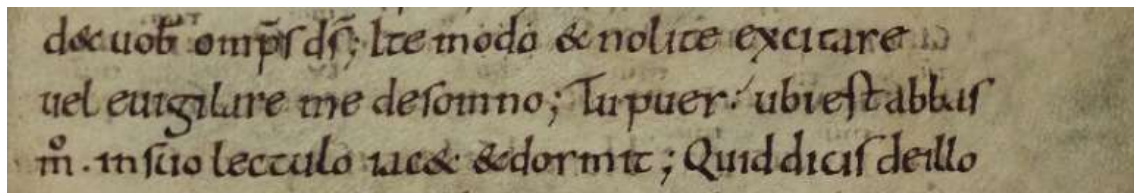 d& uob̄ omp̄s ds̄; Ite modo & nolite excitare
uel euigilare me desomno; Tu puer. ubi est abbas
m̊. in suo lectulo iac& & dormit; Quid dicis deillo